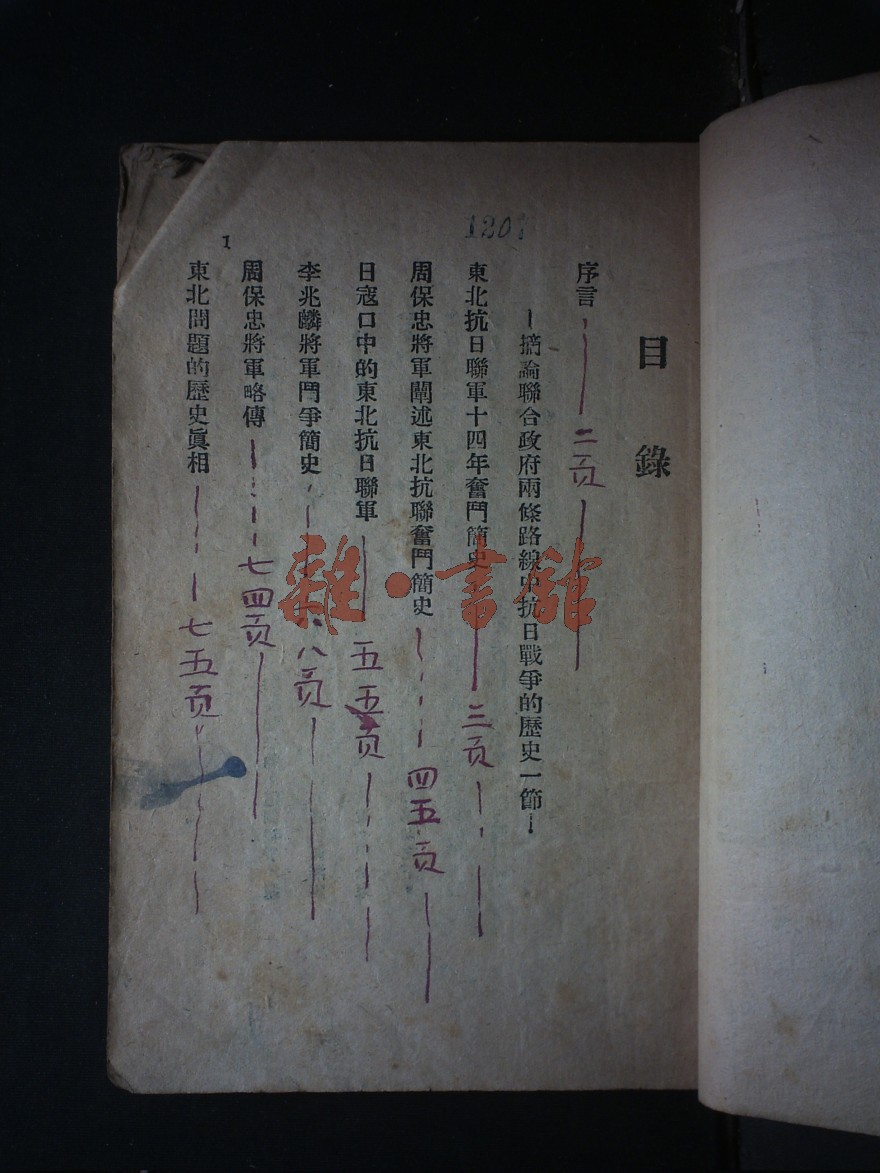 目錄
序言 二页
—摘論聯合政府兩條路線中抗日戰爭的歷史一節—
東北抗日聯軍十四年奮鬥簡史 三页
周保忠將軍闡述東北抗聯奮鬥簡史 四五页
日寇口中的東北抗日聯軍 五五页
李兆麟將軍鬥爭簡史 八页
周保忠將軍略傳 七四页
東北問題的歷史眞相 七五页
1
120
雜·書館